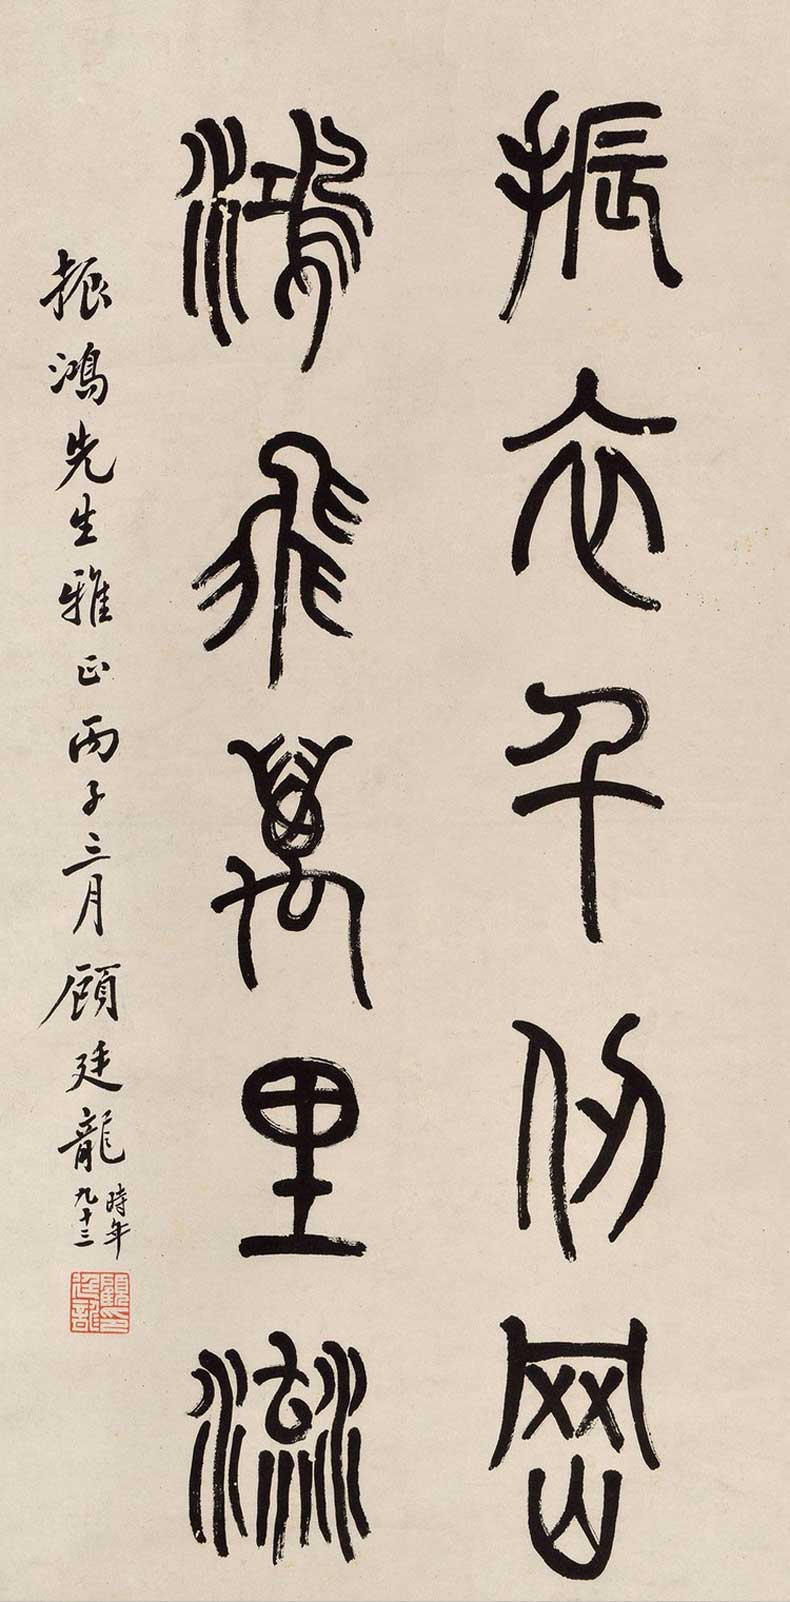 振衣千仞岡
鴻飛萬里流
振鴻先生雅正丙子三月顧廷龍時年九十三
顧廷龍印